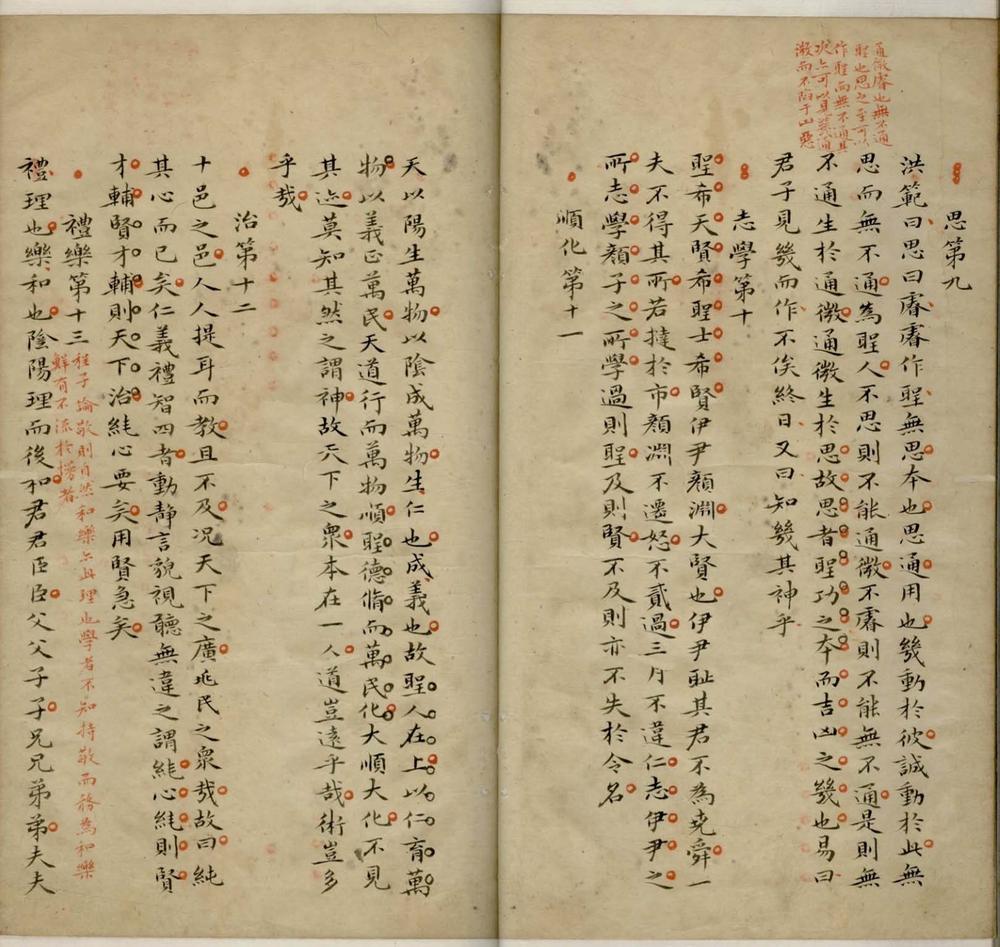 通微睿也無不通
聖也思之至可以
作聖而無不通其
次亦可以見幾通
微而不陷于凶惡
思第九
洪範曰思曰睿睿作聖無思本也思通用也幾動於彼誠動於此無
思而無不通為聖人不思則不能通微不睿則不能無不通是則無
不通生於通微通微生於思故思者聖功之本而吉凶之幾也易曰
君子見幾而作不俟終日又曰知幾其神乎
志學第十
聖希天賢希聖士希賢伊尹顏淵大賢也伊尹耻其君不為堯舜一
夫不得其所若撻於市顏淵不遷怒不貳過三月不違仁志伊尹之
所志學顏子之所學過則聖及則賢不及則亦不失於令名
順化第十一
天以陽生萬物以陰成萬物生仁也成義也故聖人在上以仁育萬
物以義正萬民天道行而萬物順聖德脩而萬民化大順大化不見
其迹莫知其然之謂神故天下之衆本在一人道豈遠乎哉術豈多
乎哉
治第十二
十邑之邑人人提耳而教且不及况天下之廣兆民之衆哉故曰純
其心而已矣仁義禮智四者動靜言貌視聽無違之謂純心純則賢
才輔賢才輔則天下治純心要矣用賢急矣
禮樂第十三
程子論敬則自然和樂亦此理也學者不知持敬而務為和樂
鮮有不流於慢者
禮理也樂和也陰陽理而後和君君臣臣父父子子兄兄弟弟夫夫